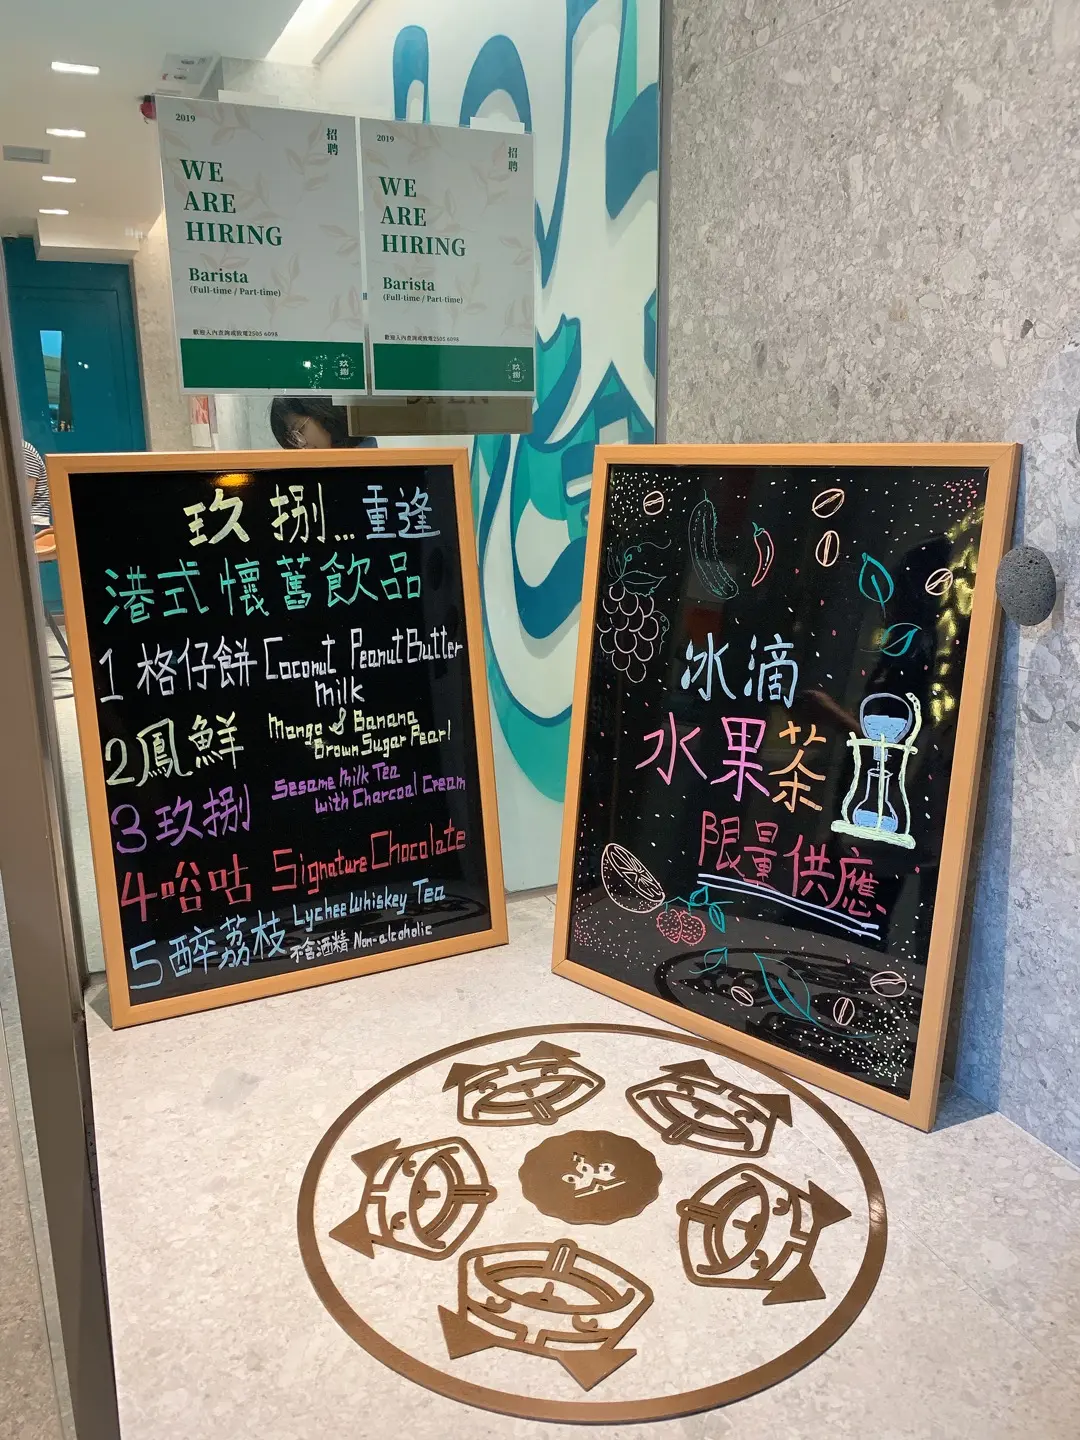 2019
招聘
WE
ARE
HIRING
Barista
(Full-time / Part-time)
歡迎入內查詢或致電2505 6098
玖捌
2019
招聘
WE
ARE
HIRING
Barista
(Full-time / Part-time)
歡迎入內查詢或致電2505 6098
玖捌
OPEN
玖捌...重逢
港式懷舊飲品
1 格仔餅 Coconut Peanut Butter
Milk
2 鳳鮮 Mango & Banana
Brown Sugar Pearl
3 玖捌 Sesame Milk Tea
with Charcoal Cream
4 唂咕 Signature Chocolate
5 醉荔枝 Lychee Whiskey Tea
不含酒精 Non-alcoholic
冰滴
水果茶
限量供應